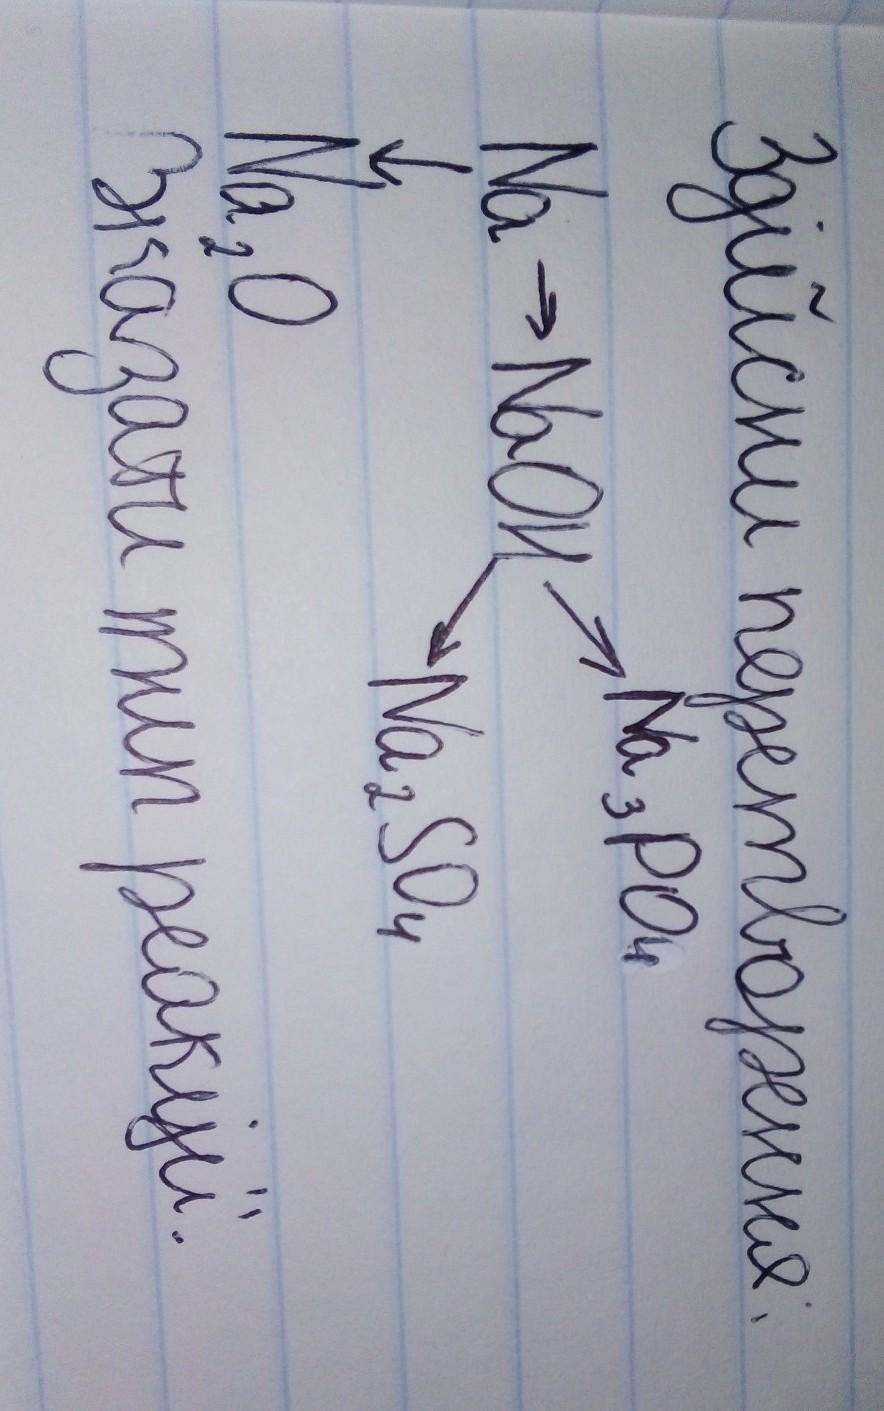 Здійсни перетворення:
Na₃PO₄
Na → NaOH
Na₂SO₄
Na₂O
Вказати тип реакції.